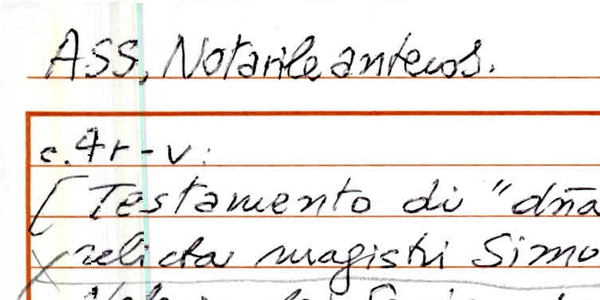 ASS, Notarile antecos.
c. 4r-v:
[Testamento di "dña
relicta magistri Simo